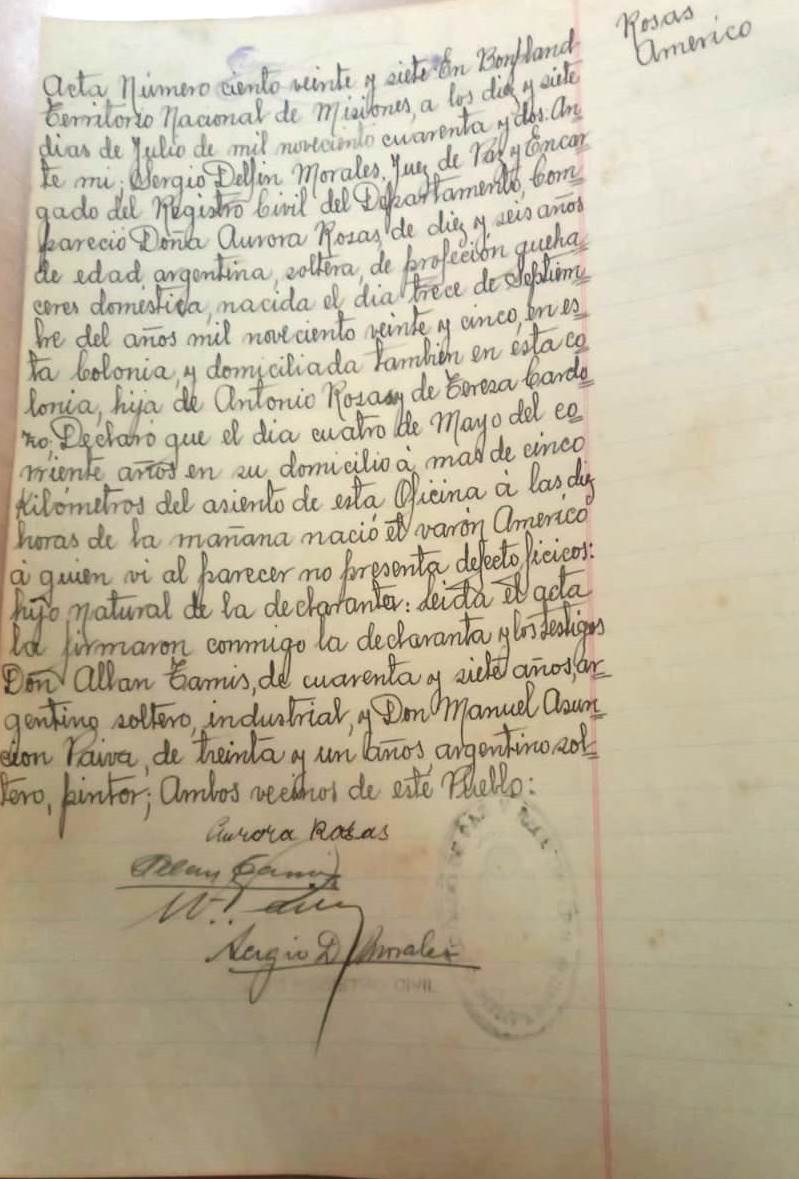 Rosas
Americo
Acta Número ciento veinte y siete En Bonpland
Territorio Nacional de Misiones, a los diez y siete
dias de Julio de mil noveciento cuarenta y dos. An
te mi; Sergio Delfin Morales, Juez de Paz y Encar
gado del Registro Civil del Departamento, Com=
pareció Doña Aurora Rosas, de diez y seis años
de edad, argentina, soltera, de profeción queha=
ceres doméstica, nacida el dia trece de Septiem=
bre del años mil noveciento veinte y cinco, en es=
ta Colonia, y domiciliada tambien en ésta co=
lonia, hija de Antonio Rosas y de Tereza Cardo=
zo; Declaró que el dia cuatro de Mayo del co=
rriente años en su domicilio à mas de cinco
Kilómetros del asiento de esta Oficina à las diez
horas de la mañana nació el varón Americo
à quien vi al parecer no presenta defecto ficicos:
hijo natural de la declaranta: Leida el acta
la firmaron conmigo la declaranta y los testigos
Don Allan Tamis, de cuarenta y siete años, ar=
gentino soltero, industrial, y Don Manuel Asun=
cion Paiva, de treinta y un años, argentino sol=
tero, pintor; Ambos vecinos de este Pueblo:
Aurora Rosas
Allan Tamis
Sergio D. Morales
CIVIL